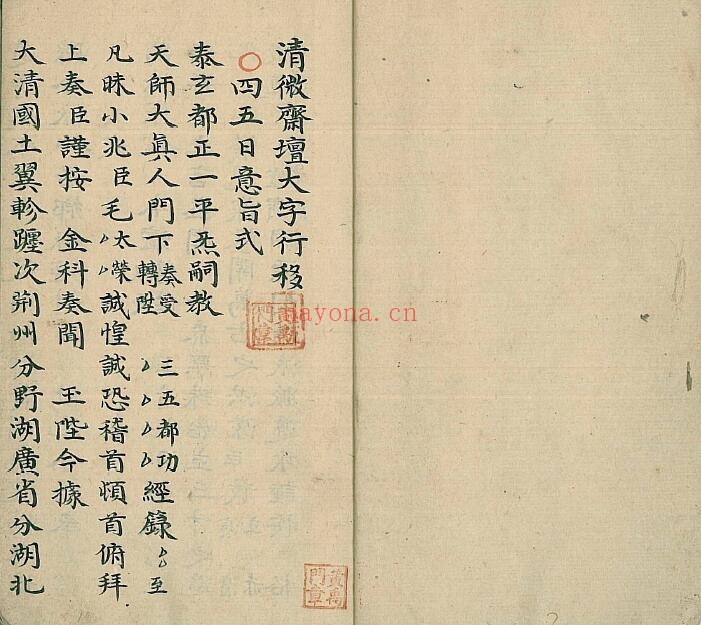 清微齋壇大字行移
○四五日意旨式
泰玄都正一平炁嗣教
天師大眞人門下奏受轉陞三五都功經籙至
凡昧小兆臣毛太榮誠惶誠恐稽首頓首俯拜
上奏臣謹按 金科奏聞 玉陛今據
大清國土翼軫躔次荆州分野湖廣省分湖北
nayona.cn
門章